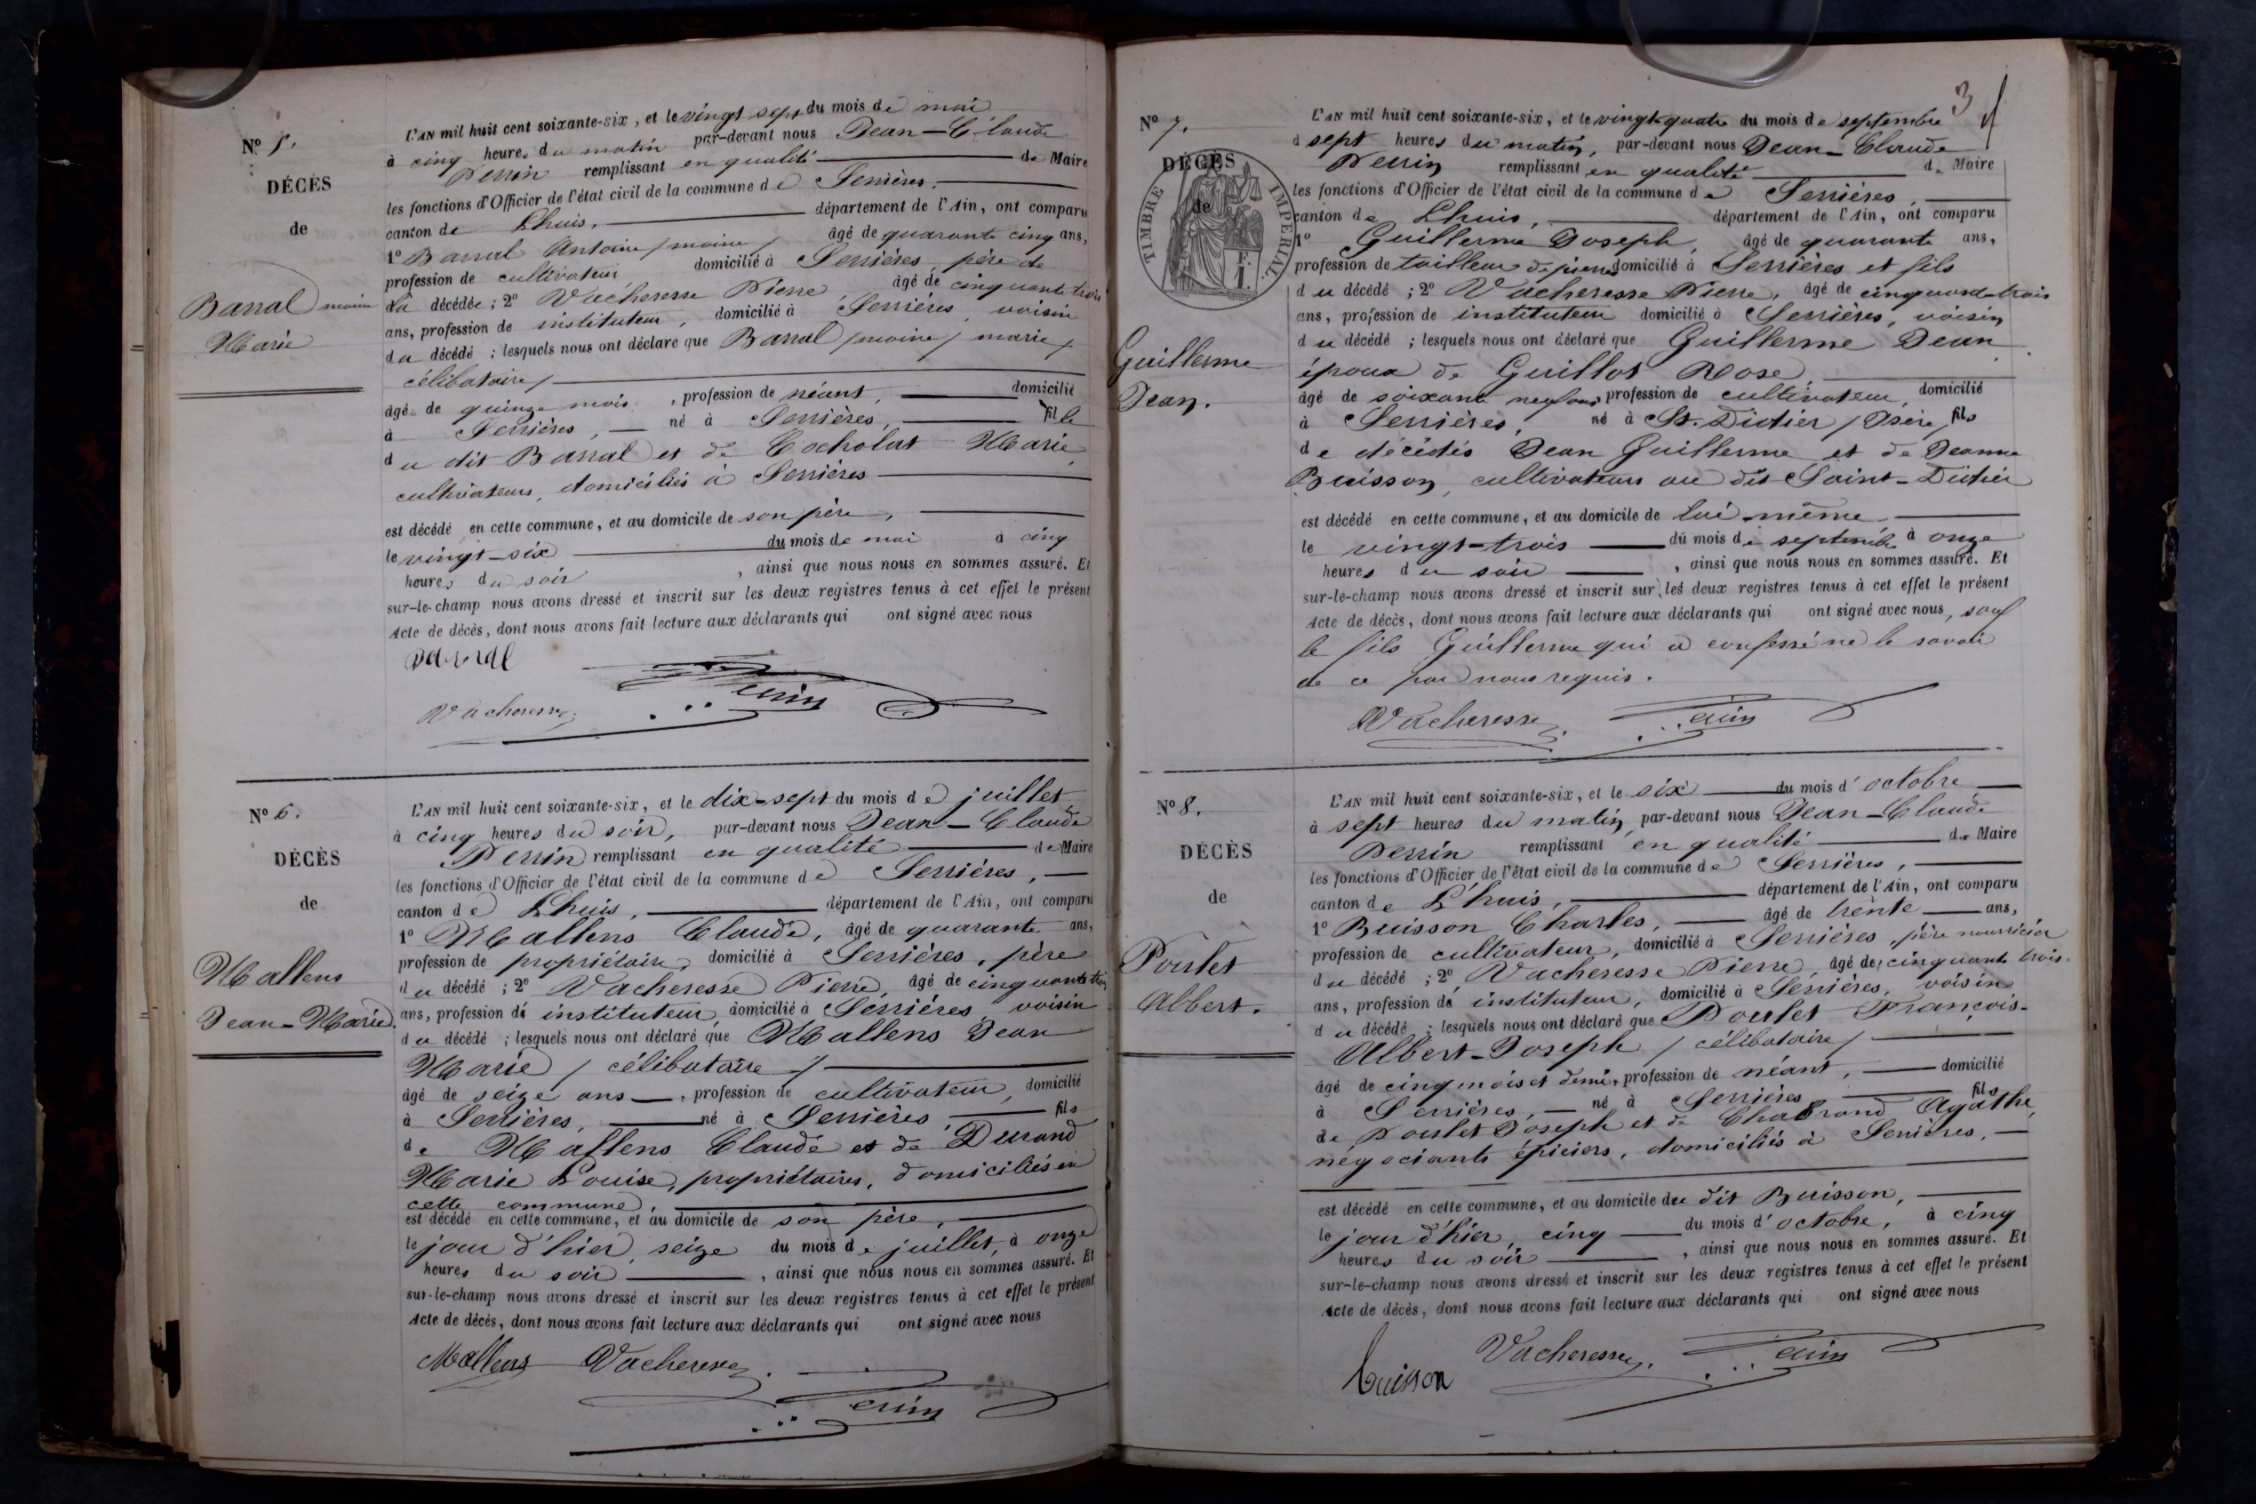 Nº 5.
DÉCÈS
de
Barral moine
Marie
L'AN mil huit cent soixante-six, et le vingt sept du mois de mai
à cinq heures du matin par-devant nous Jean-Claude
Perrin remplissant en qualité de Maire
les fonctions d'Officier de l'état civil de la commune de Serrières.
canton de Lhuis, département de l'Ain, ont comparu
1º Barral Antoine / moine / âgé de quarante cinq ans,
profession de cultivateur domicilié à Serrières père de
la décédée ; 2º Vacheresse Pierre âgé de cinquante trois
ans, profession de instituteur, domicilié à Serrières, voisin
du décédé ; lesquels nous ont déclaré que Barral / moine / marie /
célibataire /
âgé de quinze mois, profession de néant, domicilié
à Serrières, né à Serrières, fille
du dit Barral et de Cocholat Marie,
cultivateurs, domiciliés à Serrières
est décédé en cette commune, et au domicile de son père,
le vingt-six du mois de mai à cinq
heures du soir, ainsi que nous nous en sommes assuré. Et
sur-le-champ nous avons dressé et inscrit sur les deux registres tenus à cet effet le présent
Acte de décès, dont nous avons fait lecture aux déclarants qui ont signé avec nous
Barral
Perrin
Vacheresse
Nº 6.
DÉCÈS
de
Mallens
Jean-Marie.
L'AN mil huit cent soixante-six, et le dix-sept du mois de juillet
à cinq heures du soir, par-devant nous Jean-Claude
Perrin remplissant en qualité de Maire
les fonctions d'Officier de l'état civil de la commune de Serrières,
canton de Lhuis, département de l'Ain, ont comparu
1º Mallens Claude, âgé de quarante ans,
profession de propriétaire, domicilié à Serrières, père
du décédé ; 2º Vacheresse Pierre, âgé de cinquante trois
ans, profession de instituteur, domicilié à Serrières, voisin
du décédé ; lesquels nous ont déclaré que Mallens Jean
Marie / célibataire /
âgé de seize ans, profession de cultivateur, domicilié
à Serrières, né à Serrières fils
de Mallens Claude et de Durand
Marie Louise, propriétaires, domiciliés en
cette commune,
est décédé en cette commune, et au domicile de son père,
le jour d'hier, seize du mois de juillet, à onze
heures du soir, ainsi que nous nous en sommes assuré. Et
sur-le-champ nous avons dressé et inscrit sur les deux registres tenus à cet effet le présent
Acte de décès, dont nous avons fait lecture aux déclarants qui ont signé avec nous
Mallens Vacheresse.
Perrin
3
Nº 7.
DÉCÈS
de
TIMBRE IMPERIAL.
Guillerme
Jean.
L'AN mil huit cent soixante-six, et le vingt quatre du mois de septembre
à sept heures du matin, par-devant nous Jean-Claude
Perrin remplissant en qualité de Maire
les fonctions d'Officier de l'état civil de la commune de Serrières,
canton de Lhuis, département de l'Ain, ont comparu
1º Guillerme Joseph, âgé de quarante ans,
profession de tailleur de pierres domicilié à Serrières et fils
du décédé ; 2º Vacheresse Pierre, âgé de cinquante trois
ans, profession de instituteur domicilié à Serrières, voisin
du décédé ; lesquels nous ont déclaré que Guillerme Jean
époux de Guillot Rose,
âgé de soixante neuf ans profession de cultivateur, domicilié
à Serrières, né à St. Didier / Isère / fils
de décédés Jean Guillerme et de Jeanne
Buisson, cultivateurs au dit Saint-Didier
est décédé en cette commune, et au domicile de lui même
le vingt-trois du mois de septembre à onze
heures du soir, ainsi que nous nous en sommes assuré. Et
sur-le-champ nous avons dressé et inscrit sur les deux registres tenus à cet effet le présent
Acte de décès, dont nous avons fait lecture aux déclarants qui ont signé avec nous, sauf
le fils Guillerme qui a confessé ne le savoir
de ce par nous requis.
Vacheresse. Perrin
Nº 8.
DÉCÈS
de
Poulet
Albert.
L'AN mil huit cent soixante-six, et le six du mois d'octobre
à sept heures du matin, par-devant nous Jean-Claude
Perrin remplissant en qualité de Maire
les fonctions d'Officier de l'état civil de la commune de Serrières,
canton de L'huis, département de l'Ain, ont comparu
1º Buisson Charles, âgé de trente ans,
profession de cultivateur, domicilié à Serrières, père nourricier
du décédé ; 2º, Vacheresse Pierre, âgé de cinquante trois
ans, profession de instituteur, domicilié à Serrières, voisin
du décédé ; lesquels nous ont déclaré que Poulet François-
Albert-Joseph / célibataire /
âgé de cinq mois et demi, profession de néant, domicilié
à Serrières, né à Serrières fils
de Poulet Joseph et de Chabrand Agathe,
négociants épiciers, domiciliés à Serrières,
est décédé en cette commune, et au domicile du dit Buisson,
le jour d'hier, cinq du mois d'octobre, à cinq
heures du soir, ainsi que nous nous en sommes assuré. Et
sur-le-champ nous avons dressé et inscrit sur les deux registres tenus à cet effet le présent
Acte de décès, dont nous avons fait lecture aux déclarants qui ont signé avec nous
Vacheresse. Perrin
buisson